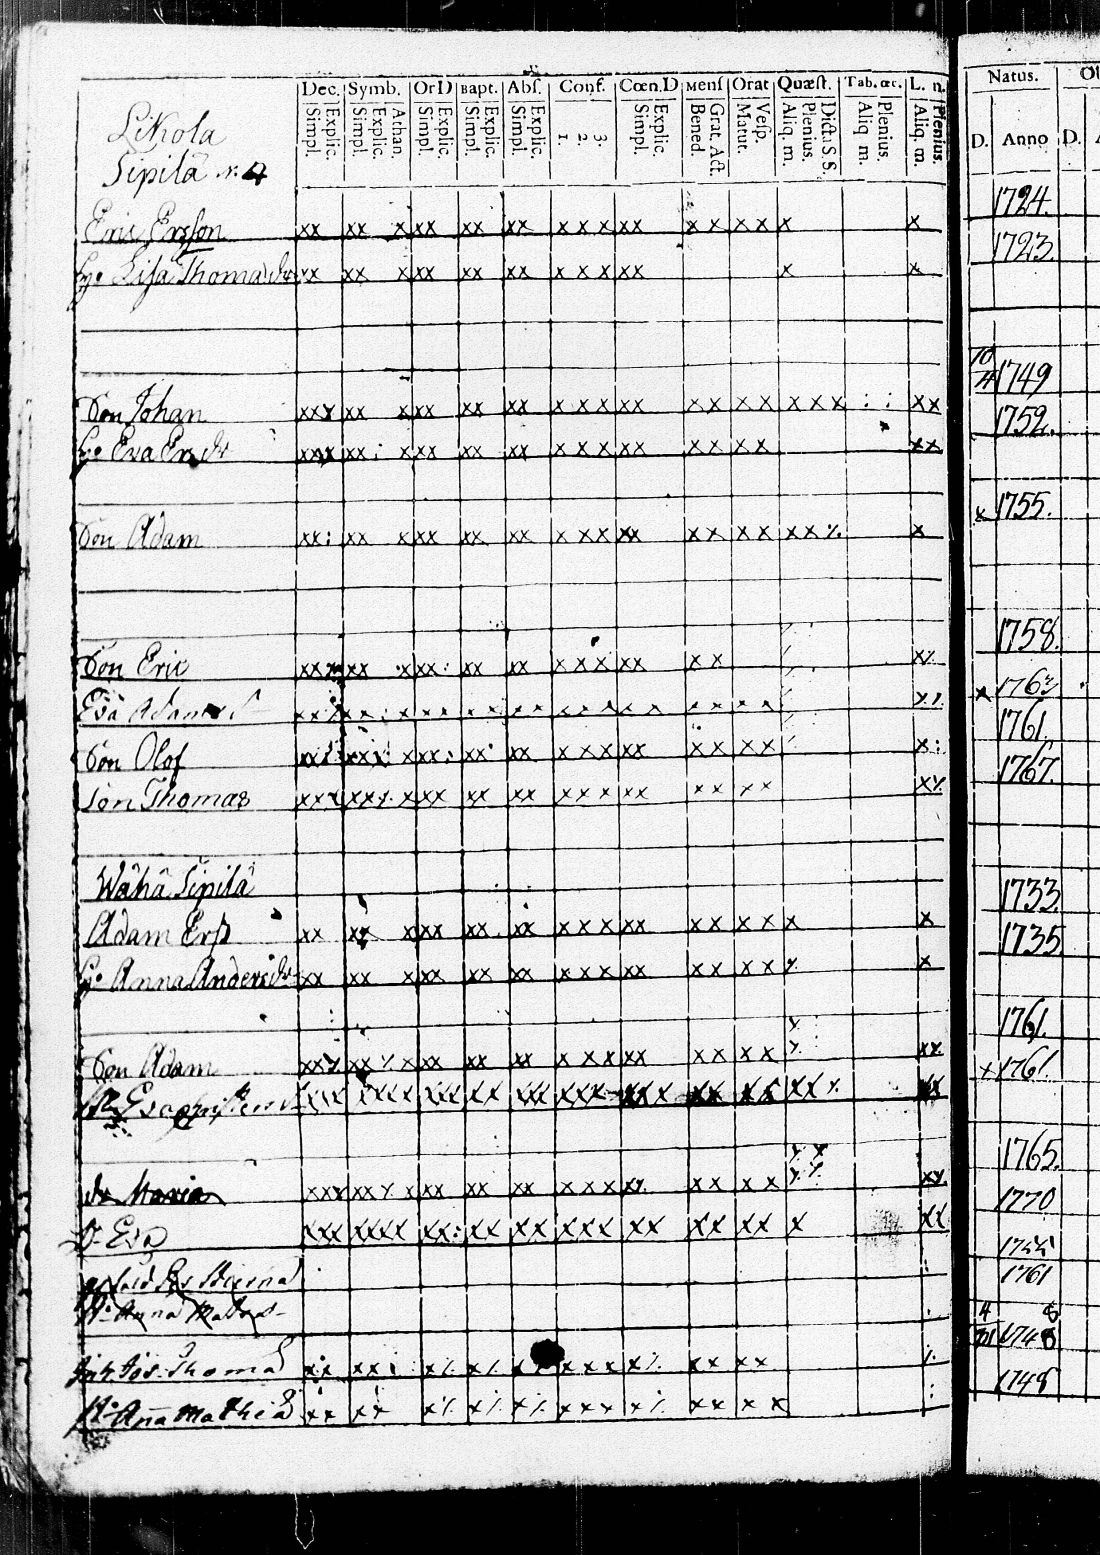 Dec. Symb. OrD Bapt. Abs. Conf. Cœn.D Mens Orat Quæst. Tab. œc. L. n.
Simpl. Explic. Simpl. Explic. Athan. Simpl. Explic. Simpl. Explic. Simpl. Explic. 1. 2. 3. Simpl. Explic. Bened. Grat. Act. Matut. Vesp. Aliq. m. Plenius. Dict. S.S. Aliq. m. Plenius. Aliq. m. Plenius.
Natus.
D. Anno D.
Likola
Sipilä N. 4
Eric Ersson xx xx x xx xx xx x x x xx x x x x x x 1724.
H:o Lisa Thomasdr xx xx x xx xx xx x x x xx x x 1723.
Son Johan xxx xx x xx xx xx x x x xx x x x x x x x : : xx 10/4 1749
H:o Eva Ersdr xxx xx : x xx xx xx x x x xx x x x x xx 1752.
Son Adam xx: xx x xx xx xx x x x xx x x x x x x ٪ x x 1755.
Son Eric xxx xx x xx: xx xx x x x xx x x x٪ 1758.
Eva Adamsd x 1763
Son Olof xx: xx xx x x x xx x x x x x: 1761.
Son Thomas xxx xxx x xx xx xx x x x xx x x x x x٪ 1767.
Wähä Sipilä
Adam Erss xx xx x xx xx xx x x x xx x x x x x x 1733.
H:o Anna Andersdr xx xx x xx xx xx x x x xx x x x x ٪ x 1735
Son Adam xxx xx ٪ x xx xx xx x x x xx x x x x ٪ xx 1761.
xxx xxxx xxx xx xxx xxx xxx xx xx xx٪ xx x 1761.
dr Maria xxx xx ٪ x xx xx xx x x x x٪ x x x x x٪ 1765.
D: Eva xxx xxxx xx: xx xx xxx xx xx xx x xx 1770
1755
H:o Anna Matsd 1761
Inh Joh. Thomas xx xx : x٪ x٪ x x x x x٪ xx xx ٪ 1748
H:o Aña Mathiä xx xx x٪ x٪ x٪ xxx x٪ xx x x : 1748